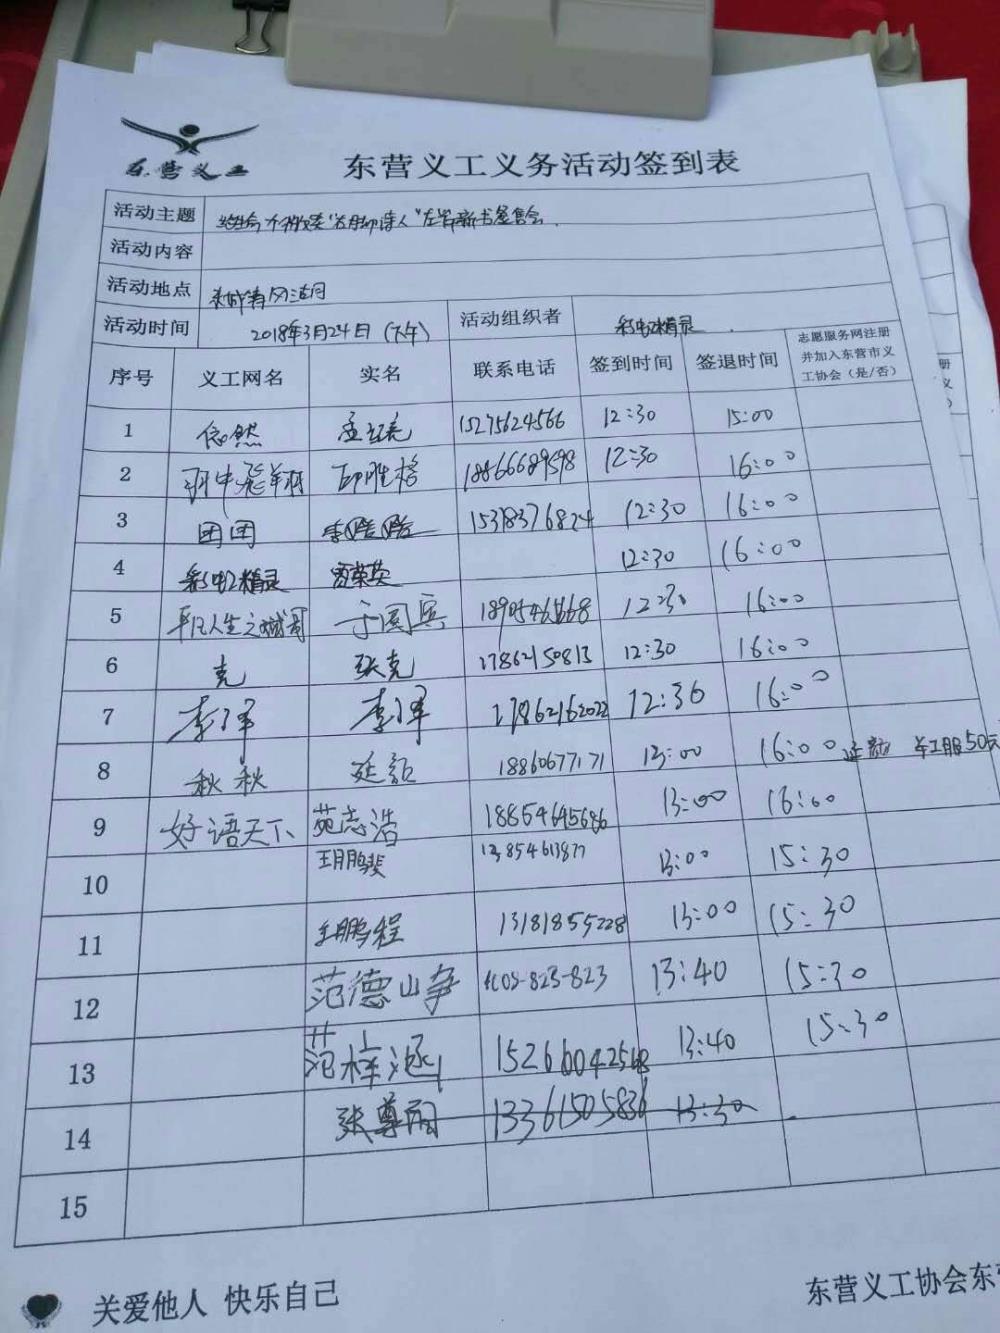 东营义工
东营义工义务活动签到表
活动主题 左岸新书签售会
活动内容
活动地点
活动时间 2018年3月24日（下午） 活动组织者 彩虹精灵
序号 义工网名 实名 联系电话 签到时间 签退时间 志愿服务网注册
并加入东营市义
工协会（是/否）
1 依然 15275624566 12:30 15:00
2 18866689598 12:30 16:00
3 团团 15318376824 12:30 16:00
4 彩虹精灵 12:30 16:00
5 平凡人生之 于国宾 12:30 16:00
6 克 张克 17862150813 12:30 16:00
7 李军 李军 17862162022 12:36 16:00
8 秋秋 18860677171 13:00 16:00 50元
9 好语天下 苑志浩 18854645686 13:00 16:00
10 王鹏斐 13854613877 13:00 15:30
11 王鹏程 13181855228 13:00 15:30
12 范德山争 823-823 13:40 15:30
13 范梓涵 15266042568 13:40 15:30
14 13361505836 13:30
15
关爱他人 快乐自己
东营义工协会东